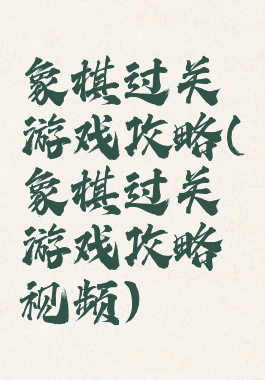 象棋过关
游戏攻略(
象棋过关
游戏攻略
视频)